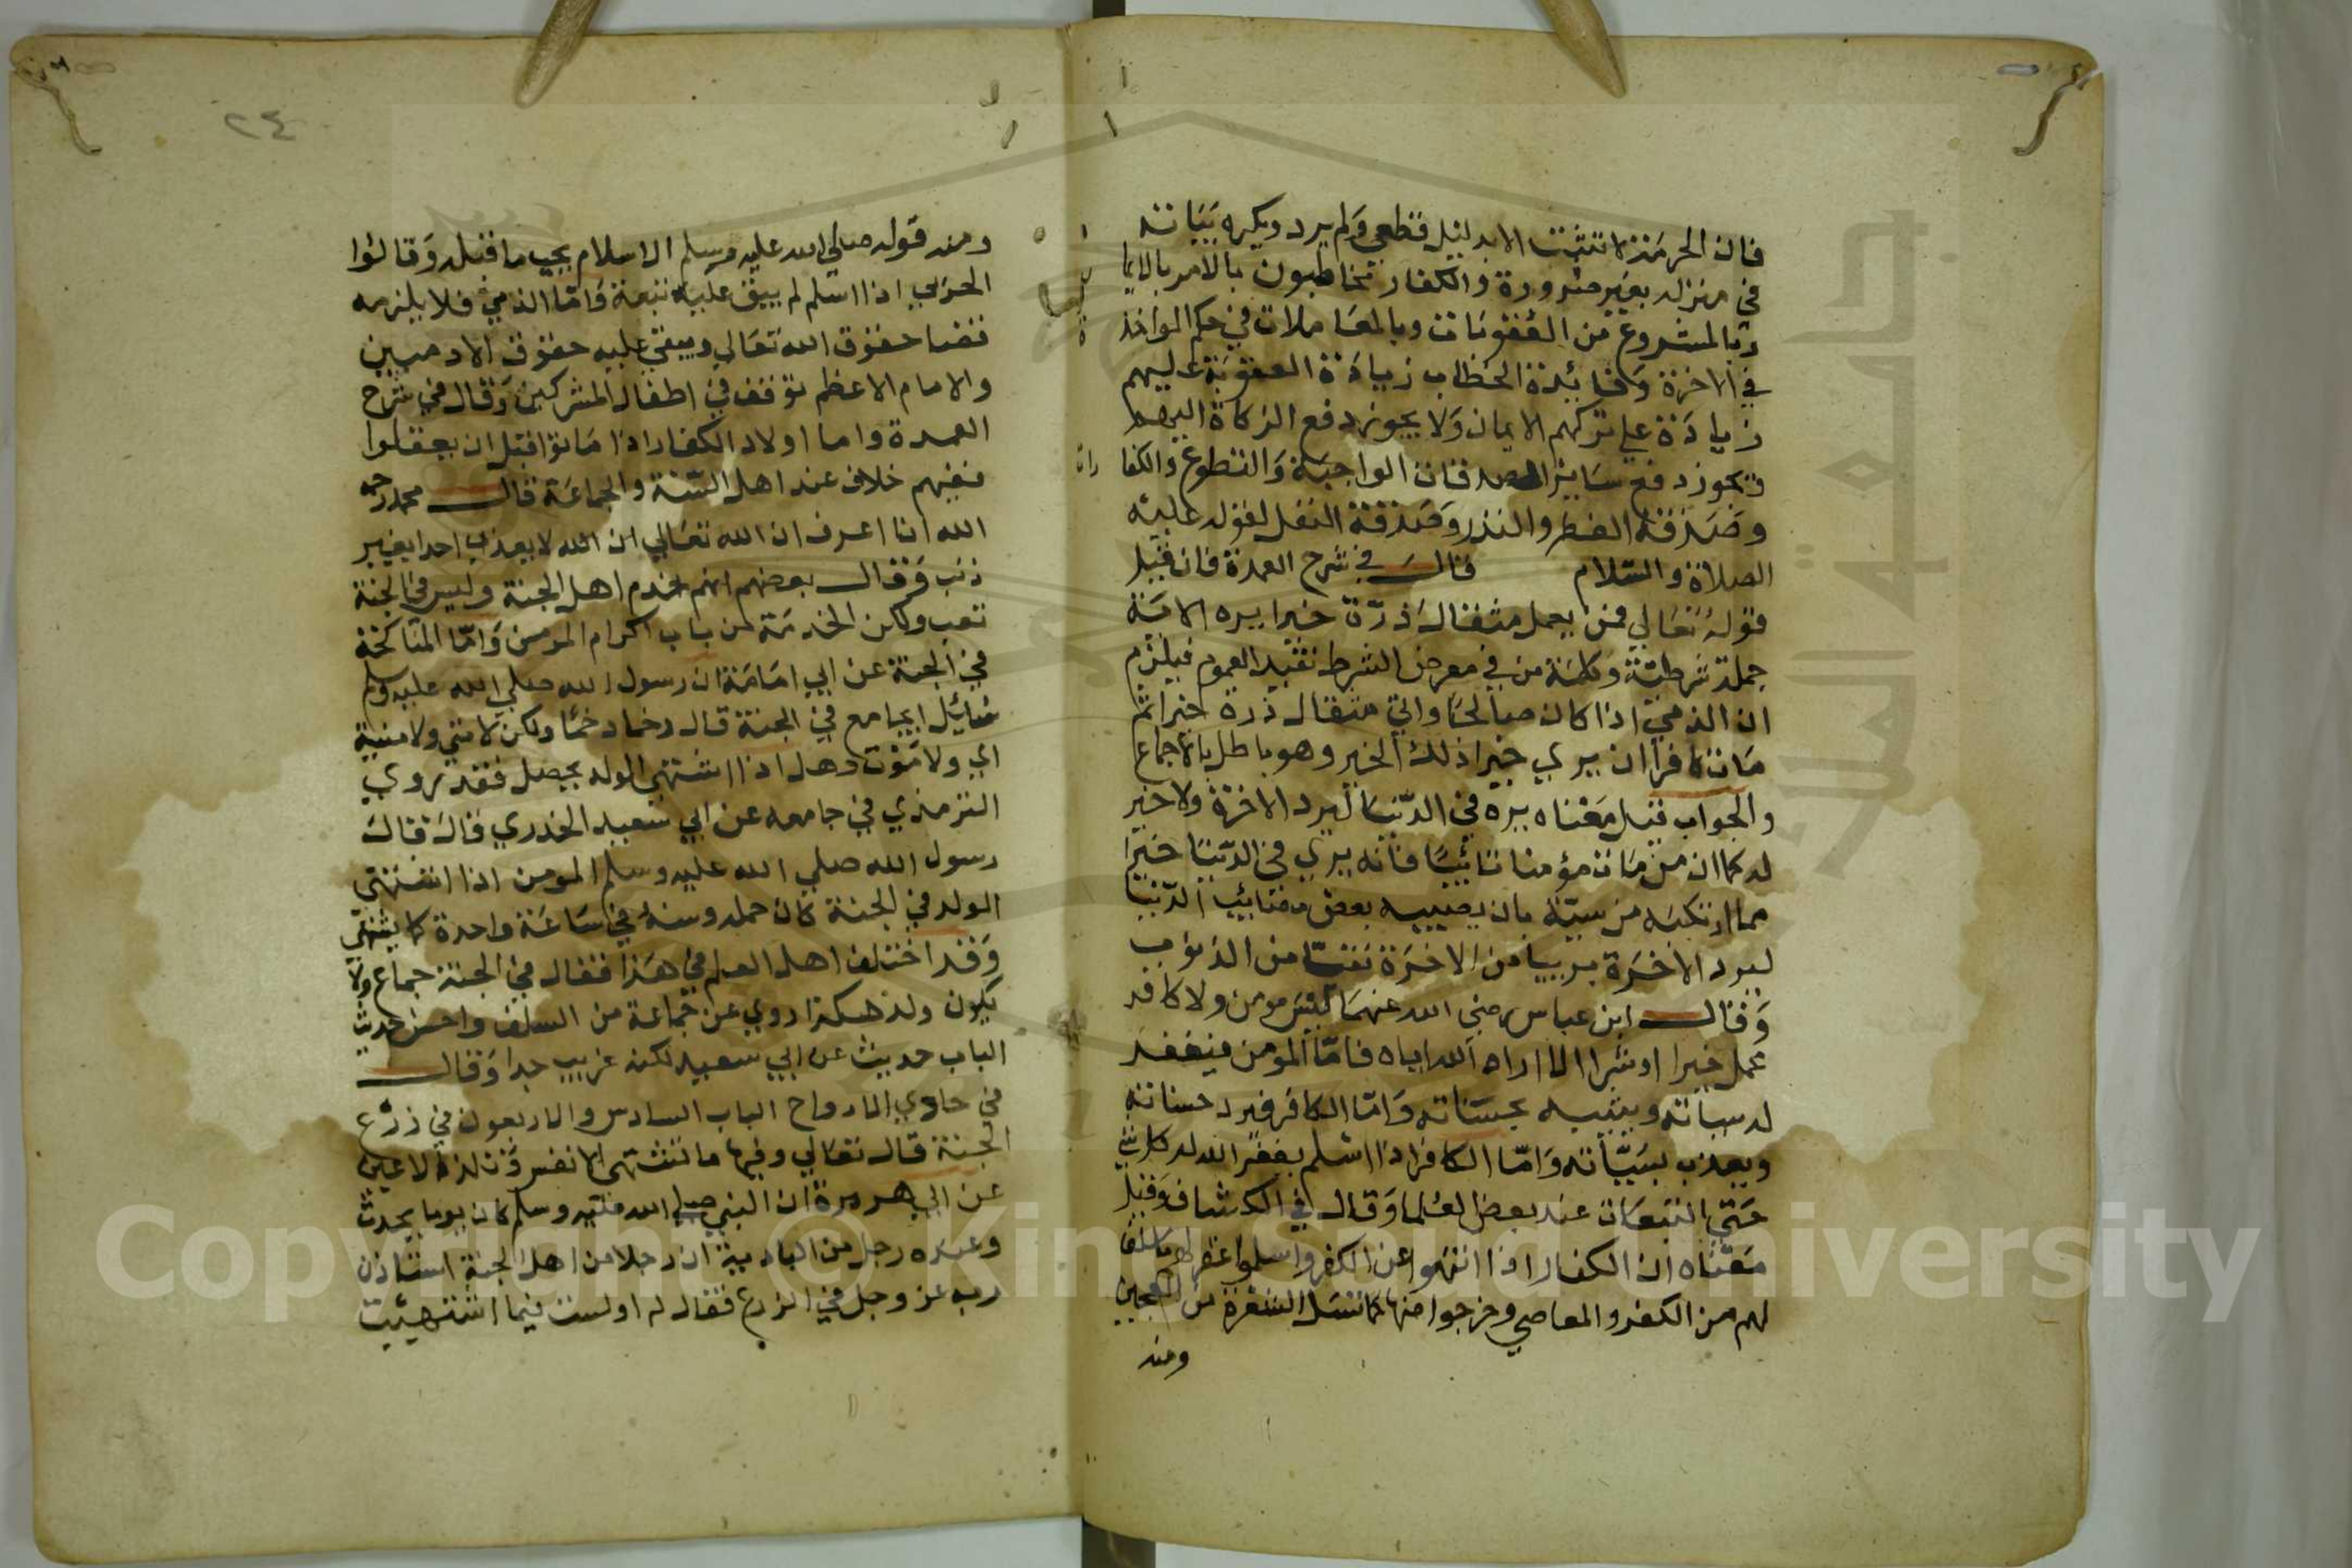 فان الحرمة لا تثبت الا بدليل قطعي ولم يرد ويكره بياته
في منزله بغير ضرورة والكفار مخاطبون بالامر بالايما
وبالمشروع من العقوبات وبالمعاملات في حكم المواخذ
في الاخرة وفائدة الخطاب زيادة العقوبة عليهم
زيادة علي تركهم الايمان ولا يجوز دفع الزكاة اليهم
ويجوز دفع ساير الصدقات الواجبة والتطوع والكفا
رات
وصدقة الفطر والنذر وصدقة النفل لقوله عليه
الصلاة والسلام قال في شرح العمدة فان قيل
قوله تعالي فمن يعمل مثقال ذرة خيرا يره الاية
جملة شرطية وكلمة من في معرض الشرط تفيد العموم فيلزم
ان الذمي اذا كان صالحا واتي مثقال ذرة خيرا ثم
مات كافرا ان يري خيرا ذلك الخير وهو باطل بالاجماع
والجواب قيل معناه يره في الدنيا ليرد الاخرة ولا خير
له كما ان من مات مؤمنا تائبا فانه يري في الدنيا خيرا
مما ارتكبه من سيئة بان يصيبه بعض مصائب الدنيا
ليرد الاخرة بريا من الاخرة نقيا من الذنوب
وقال ابن عباس رضي الله عنهما ليس مومن ولا كافر
عمل خيرا او شرا الا اراه الله اياه فاما المومن فيغفر
له سياته ويثيبه بحسناته واما الكافر فيرد حسناته
ويعذب بسيئاته واما الكافر اذا اسلم يغفر الله له كل شي
حتي التبعات عند بعض العلما وقال في الكشاف وقيل
معناه ان الكفار اذا انتهوا عن الكفر واسلموا غفر لهم ما سلف
لهم من الكفر والمعاصي وخرجوا منها كما تنسل الشعرة من العجين
ومنه
٢٤
ومنه قوله صلي الله عليه وسلم الاسلام يجب ما قبله وقالوا
الحربي اذا اسلم لم يبق عليه تبعة واما الذمي فلا يلزمه
قضا حقوق الله تعالي ويبقي عليه حقوق الادميين
والامام الاعظم توقف في اطفال المشركين وقال في شرح
العمدة واما اولاد الكفار اذا ماتوا قبل ان يعقلوا
ففيهم خلاف عند اهل السنة والجماعة قال محمد رحمه
الله انا اعرف ان الله تعالي ان الله لا يعذب احدا بغير
ذنب وقال بعضهم انهم خدم اهل الجنة وليس في الجنة
تعب ولكن الخدمة من باب اكرام المومن واما المناكحة
في الجنة عن ابي امامة ان رسول الله صلي الله عليه وسلم
سئل ايجامع في الجنة قال دحما دحما ولكن لا مني ولا منية
اي ولا موت وهل اذا اشتهي الولد يحصل فقد روي
الترمذي في جامعه عن ابي سعيد الخدري قال قال
رسول الله صلي الله عليه وسلم المومن اذا اشتهي
الولد في الجنة كان حمله وسنه في ساعة واحدة كما يشتهي
وقد اختلف اهل العلم في هذا فقال في الجنة جماع ولا
يكون ولد هكذا روي عن جماعة من السلف واحسن حديث
الباب حديث عن ابي سعيد لكنه غريب جدا وقال
في حادي الارواح الباب السادس والاربعون في زرع
الجنة قال تعالي وفيها ما تشتهي الانفس وتلذ الاعين
عن ابي هريرة ان النبي صلي الله عليه وسلم كان يوما يحدث
وعنده رجل من البادية ان رجلا من اهل الجنة استاذن
ربه عز وجل في الزرع فقال له اولست فيما اشتهيت
Copyright © King Saud University